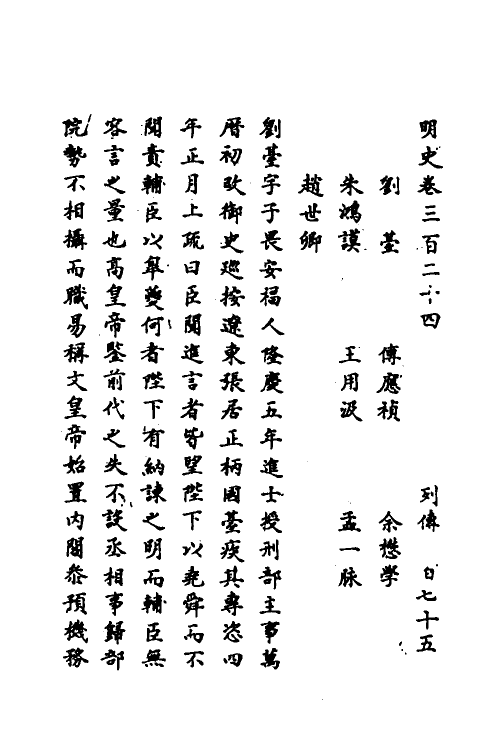 明史卷三百二十四　列傳　百七十五
劉臺　傅應禎　余懋學
朱鴻謨　王用汲　孟一脉
趙世卿
劉臺字子畏安福人隆慶五年進士授刑部主事萬
曆初改御史巡按遼東張居正柄國臺疾其專恣四
年正月上疏曰臣聞進言者皆望陛下以堯舜而不
聞責輔臣以皐夔何者陛下有納諫之明而輔臣無
容言之量也高皇帝鑒前代之失不設丞相事歸部
院勢不相攝而職易稱文皇帝始置内閣叅預機務